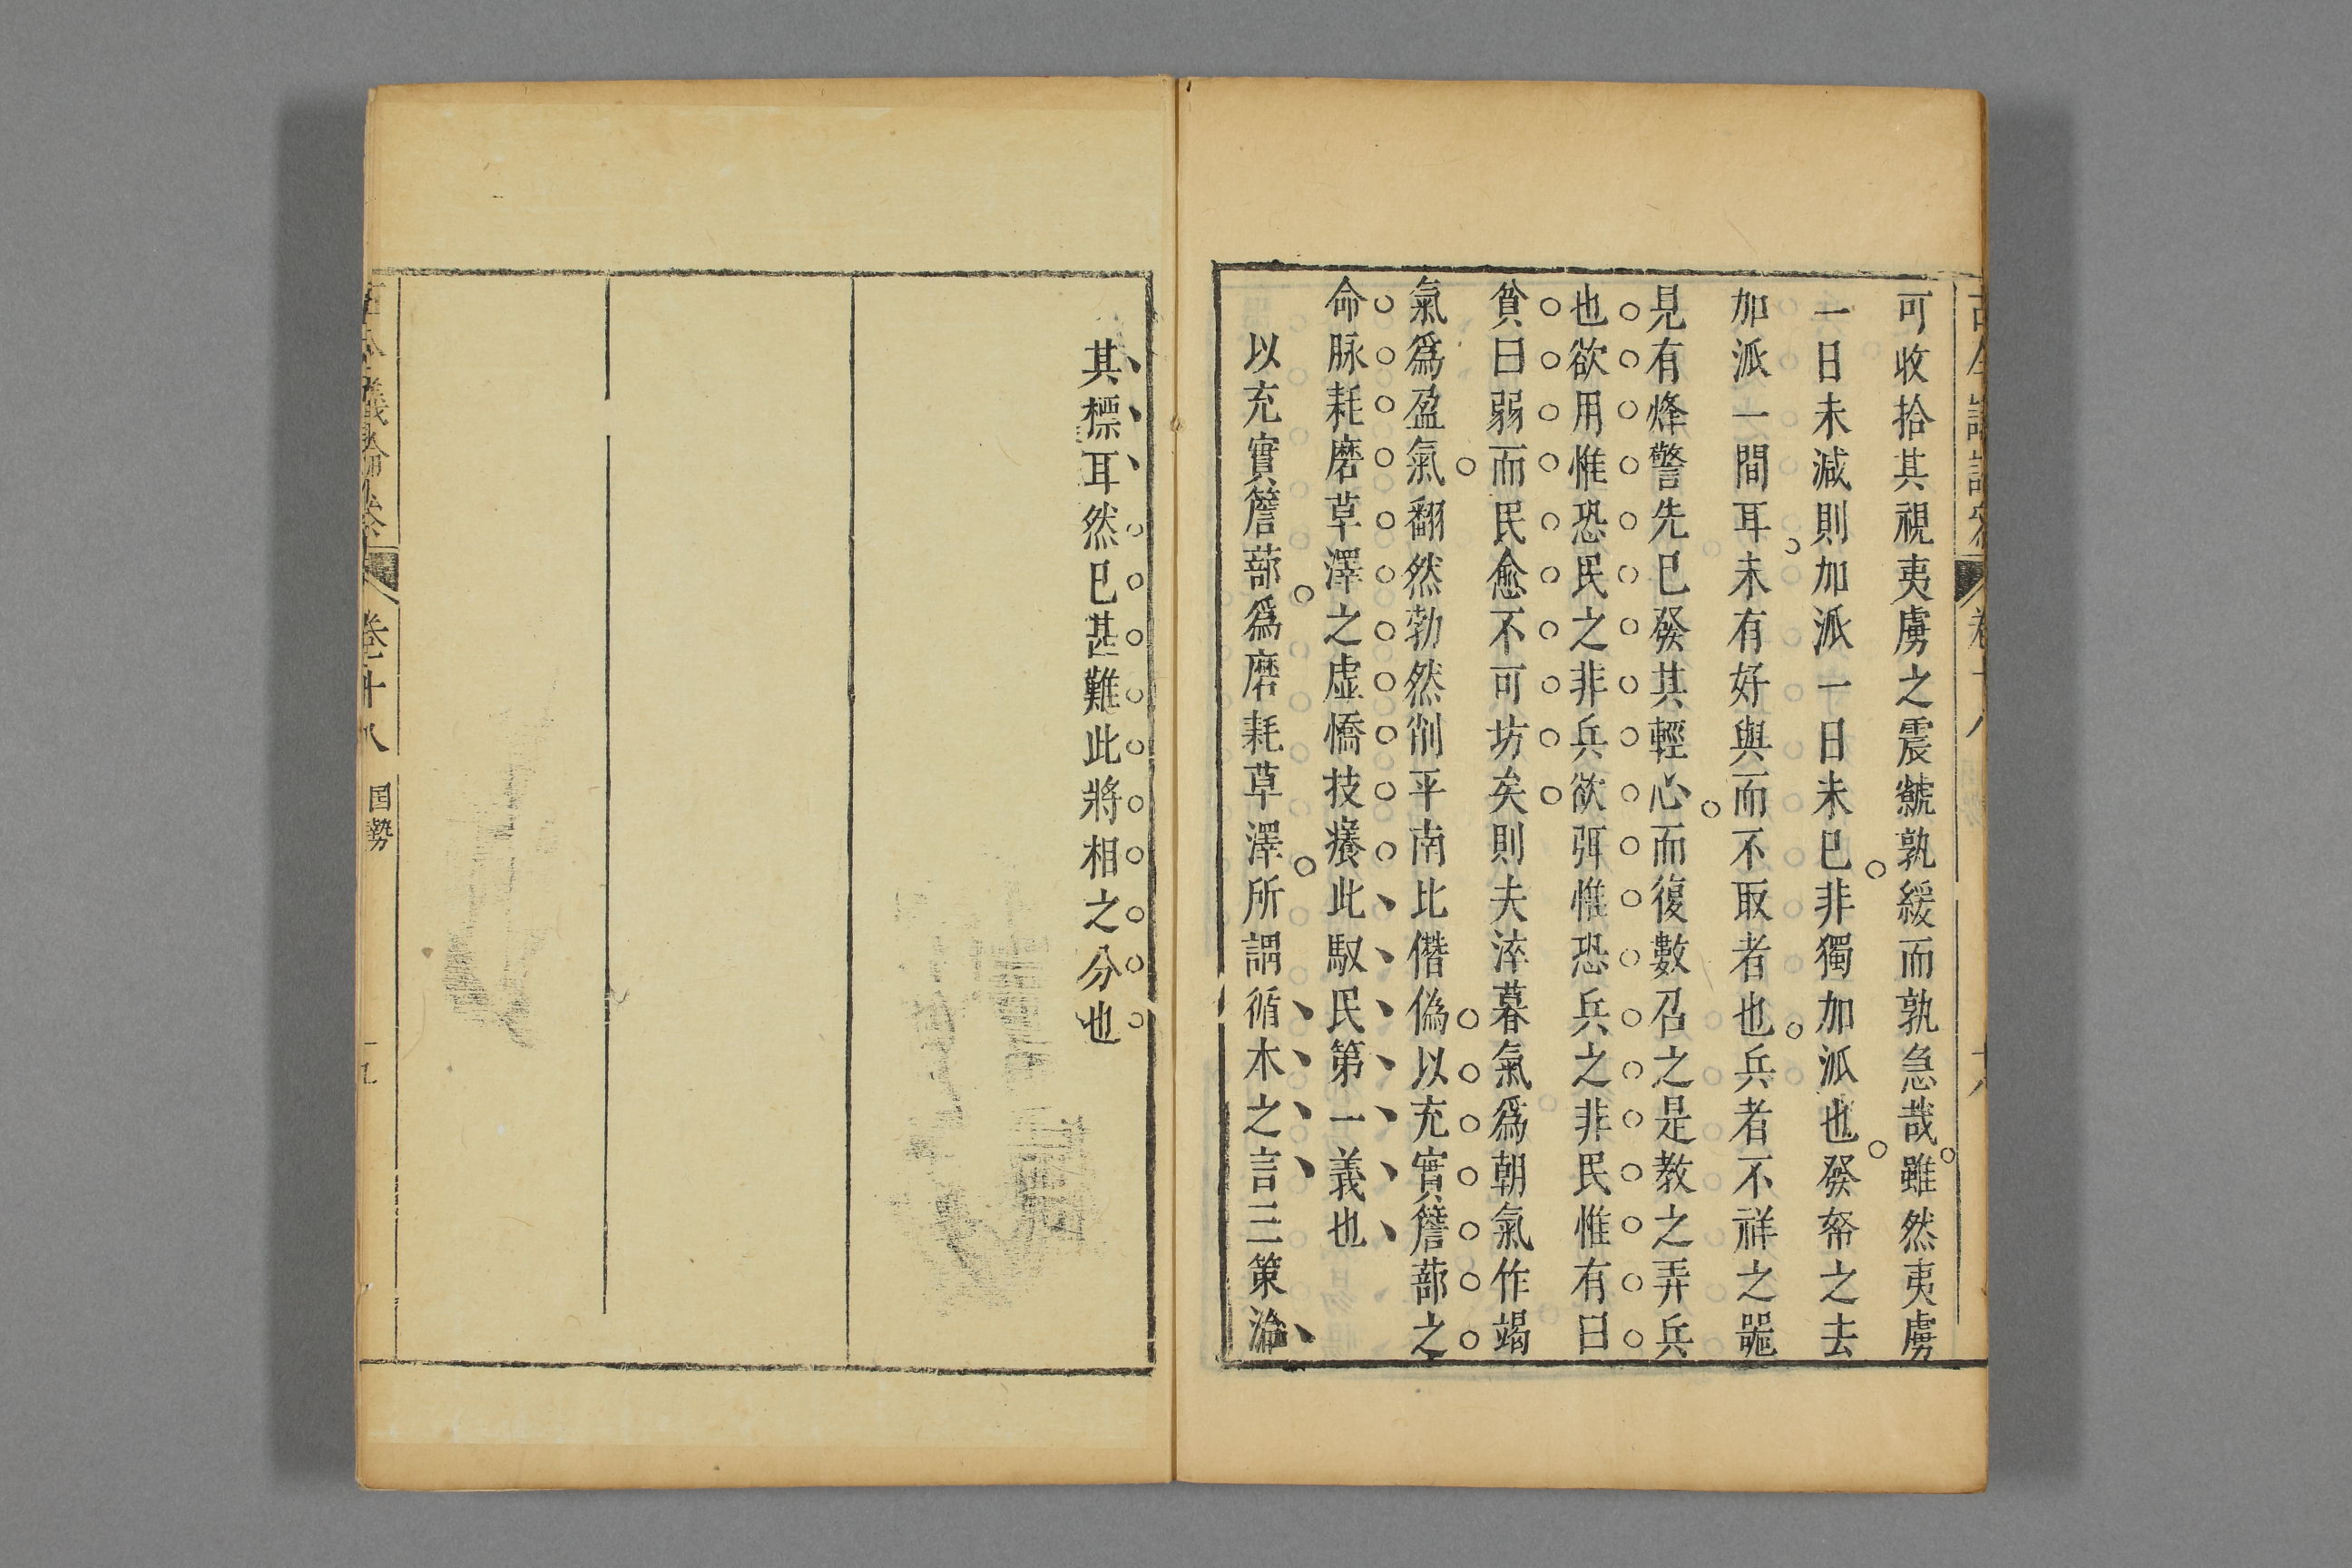 可收拾其視夷虜之震虩孰緩而孰急哉雖然夷虜
一日未減則加派一日未已非獨加派也發帑之去
加派一間耳未有好與而不取者也兵者不祥之噐
見有烽警先已發其輕心而復數召之是教之弄兵
也欲用惟恐民之非兵欲弭惟恐兵之非民惟有日
貧日弱而民愈不可坊矣則夫淬暮氣爲朝氣作竭
氣爲盈氣翻然勃然削平南北僭偽以充實簷蔀之
命脉耗磨草澤之虛憍技癢此馭民第一義也
以充實簷蔀爲磨耗草澤所謂循木之言三策治
其標耳然已甚難此將相之分也
卷十八
国勢